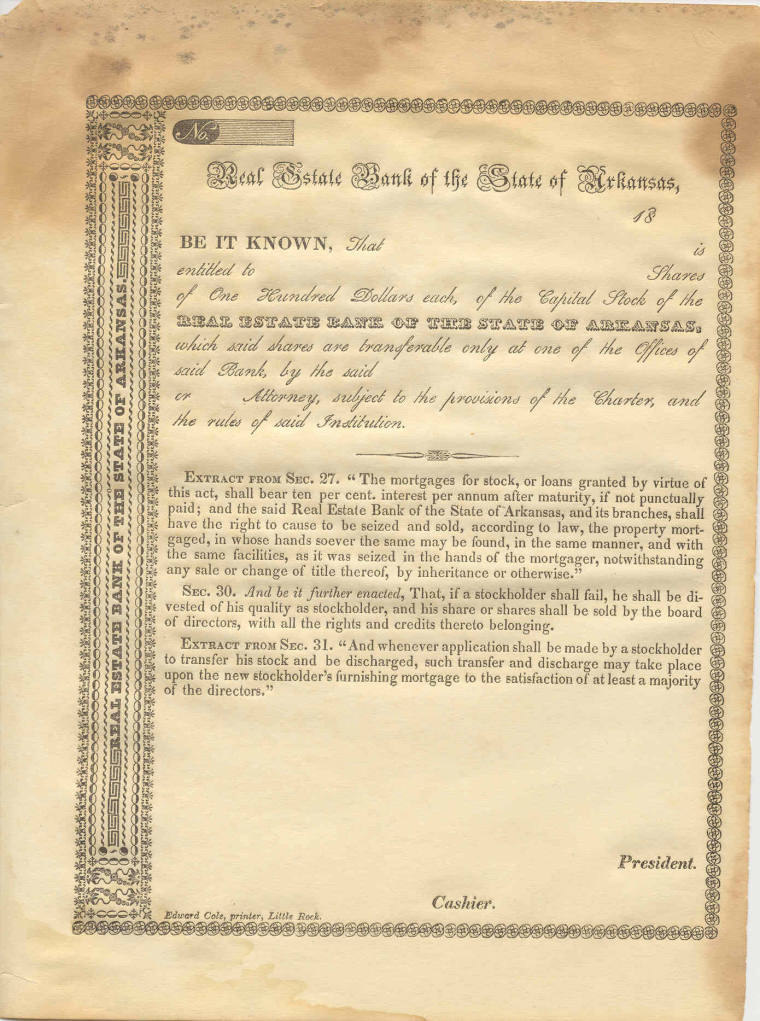 No.
Real Estate Bank of the State of Arkansas,
18
BE IT KNOWN, That is
entitled to Shares
of One Hundred Dollars each, of the Capital Stock of the
REAL ESTATE BANK OF THE STATE OF ARKANSAS,
which said shares are transferable only at one of the Offices of
said Bank, by the said
or Attorney, subject to the provisions of the Charter, and
the rules of said Institution.
EXTRACT FROM SEC. 27. “The mortgages for stock, or loans granted by virtue of
this act, shall bear ten per cent. interest per annum after maturity, if not punctually
paid; and the said Real Estate Bank of the State of Arkansas, and its branches, shall
have the right to cause to be seized and sold, according to law, the property mort-
gaged, in whose hands soever the same may be found, in the same manner, and with
the same facilities, as it was seized in the hands of the mortgager, notwithstanding
any sale or change of title thereof, by inheritance or otherwise.”
SEC. 30. And be it further enacted, That, if a stockholder shall fail, he shall be di-
vested of his quality as stockholder, and his share or shares shall be sold by the board
of directors, with all the rights and credits thereto belonging.
EXTRACT FROM SEC. 31. “And whenever application shall be made by a stockholder
to transfer his stock and be discharged, such transfer and discharge may take place
upon the new stockholder's furnishing mortgage to the satisfaction of at least a majority
of the directors.”
President.
Cashier.
Edward Cole, printer, Little Rock.
REAL ESTATE BANK OF THE STATE OF ARKANSAS.